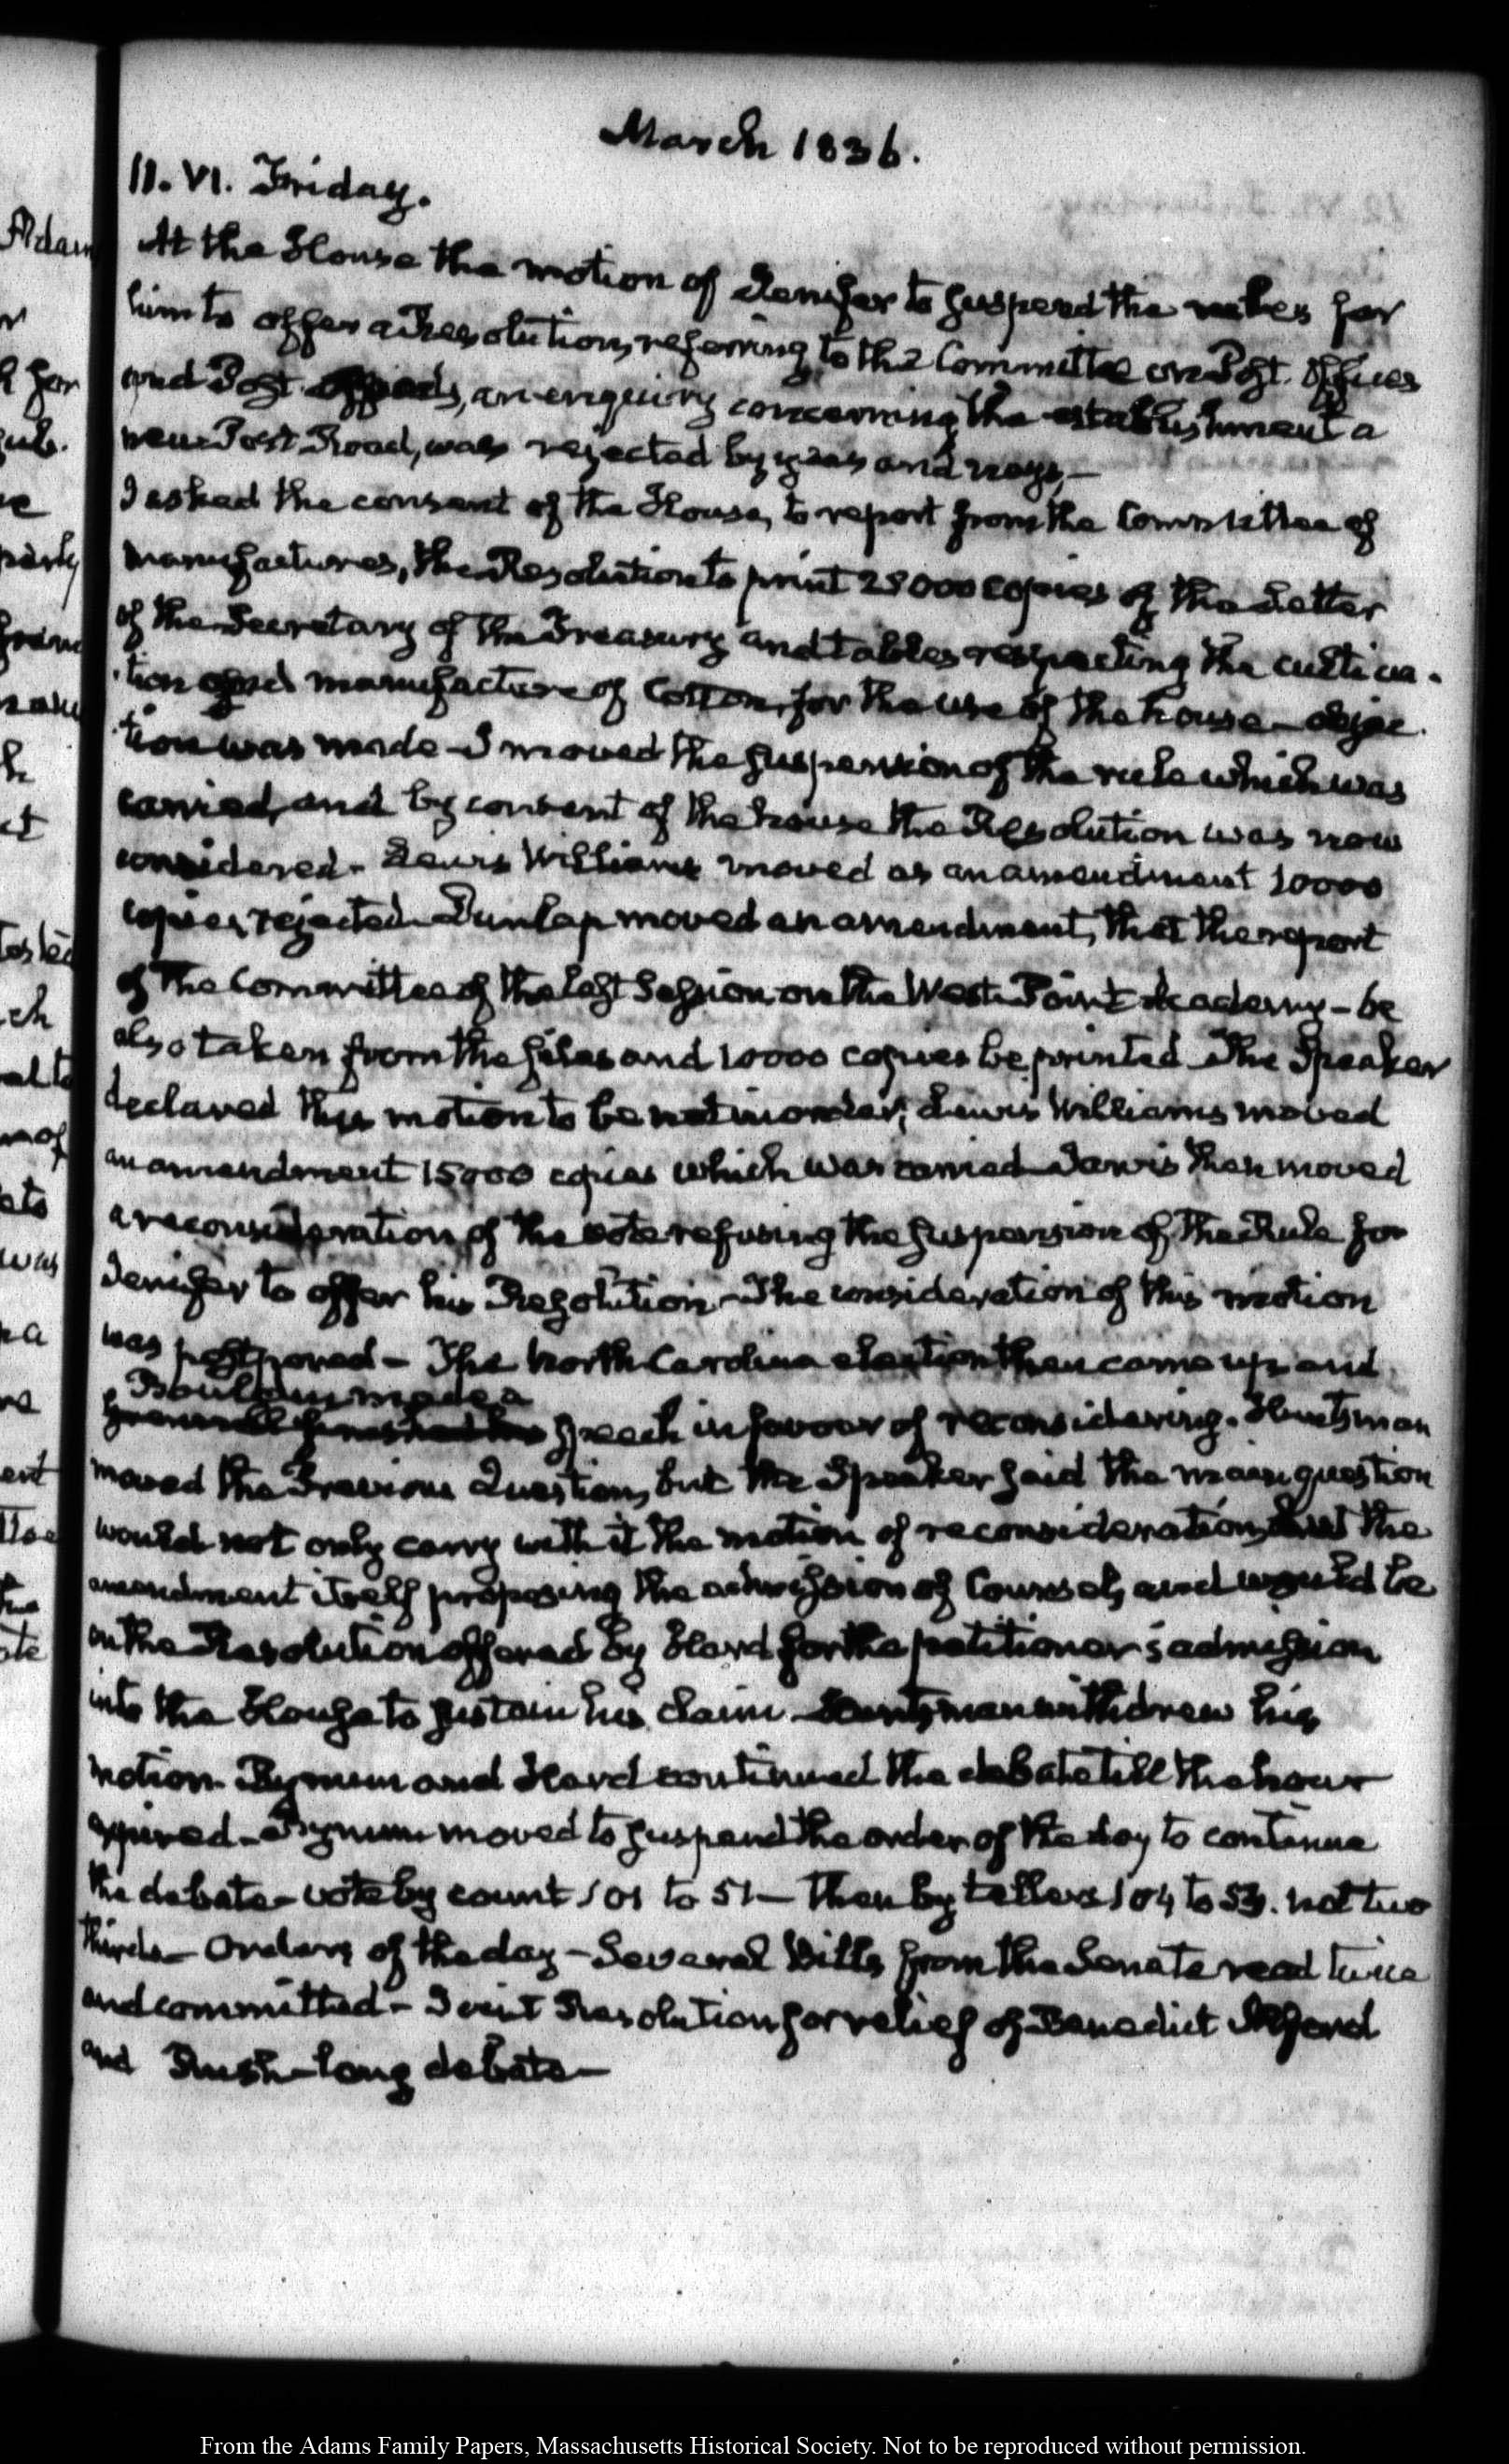 March 1836.
11. VI. Friday.
At the House the motion of Jenifer to suspend the rules for
him to offer a Resolution, referring to the Committee on Post Offices
and Post , an enquiry concerning the establishment a
new Post Road, was rejected by yeas and nays,—
I asked the consent of the House, to report from the Committee of
Manufactures, the Resolution to print 25000 copies of the Letter
of the Secretary of the Treasury and tables respecting the cultiva-
tion and manufacture of Cotton, for the use of the house—objec-
tion was made—I moved the suspension of the rule which was
carried, and by consent of the house the Resolution was now
considered—Lewis Williams moved as an amendment 10000
copies, rejected—Dunlap moved an amendment, that the report
of the Committee of the last Session on the West-Point Academy—be
also taken from the files and 10000 copies be printed—The Speaker
declared this motion to be not in order; Lewis Williams moved
an amendment 15000 copies which was carried—Jarvis then moved
a reconsideration of the vote refusing the suspension of the Rule for
Jenifer to offer his Resolution—The consideration of this motion
was postponed—The North Carolina election then came up and
Bouldin made a
speech in favour of reconsidering. Huntsman
moved the Previous Question, but the Speaker said the main question
would not only carry with it the motion of reconsideration, but the
amendment itself proposing the admission of Counsel, and would be
on the Resolution offered by Hard for the petitioner's admission
into the House to sustain his claim—Huntsman withdrew his
motion—Bynum and Hard continued the debate till the hour
expired—Bynum moved to suspend the order of the day to continue
the debate—vote by count 101 to 51—then by tellers 104 to 53. not two
thirds—Orders of the day—Several Bills from the Senate read twice
and committed—Joint Resolution for relief of Benedict Alford
and Brush—long debate—
Adam